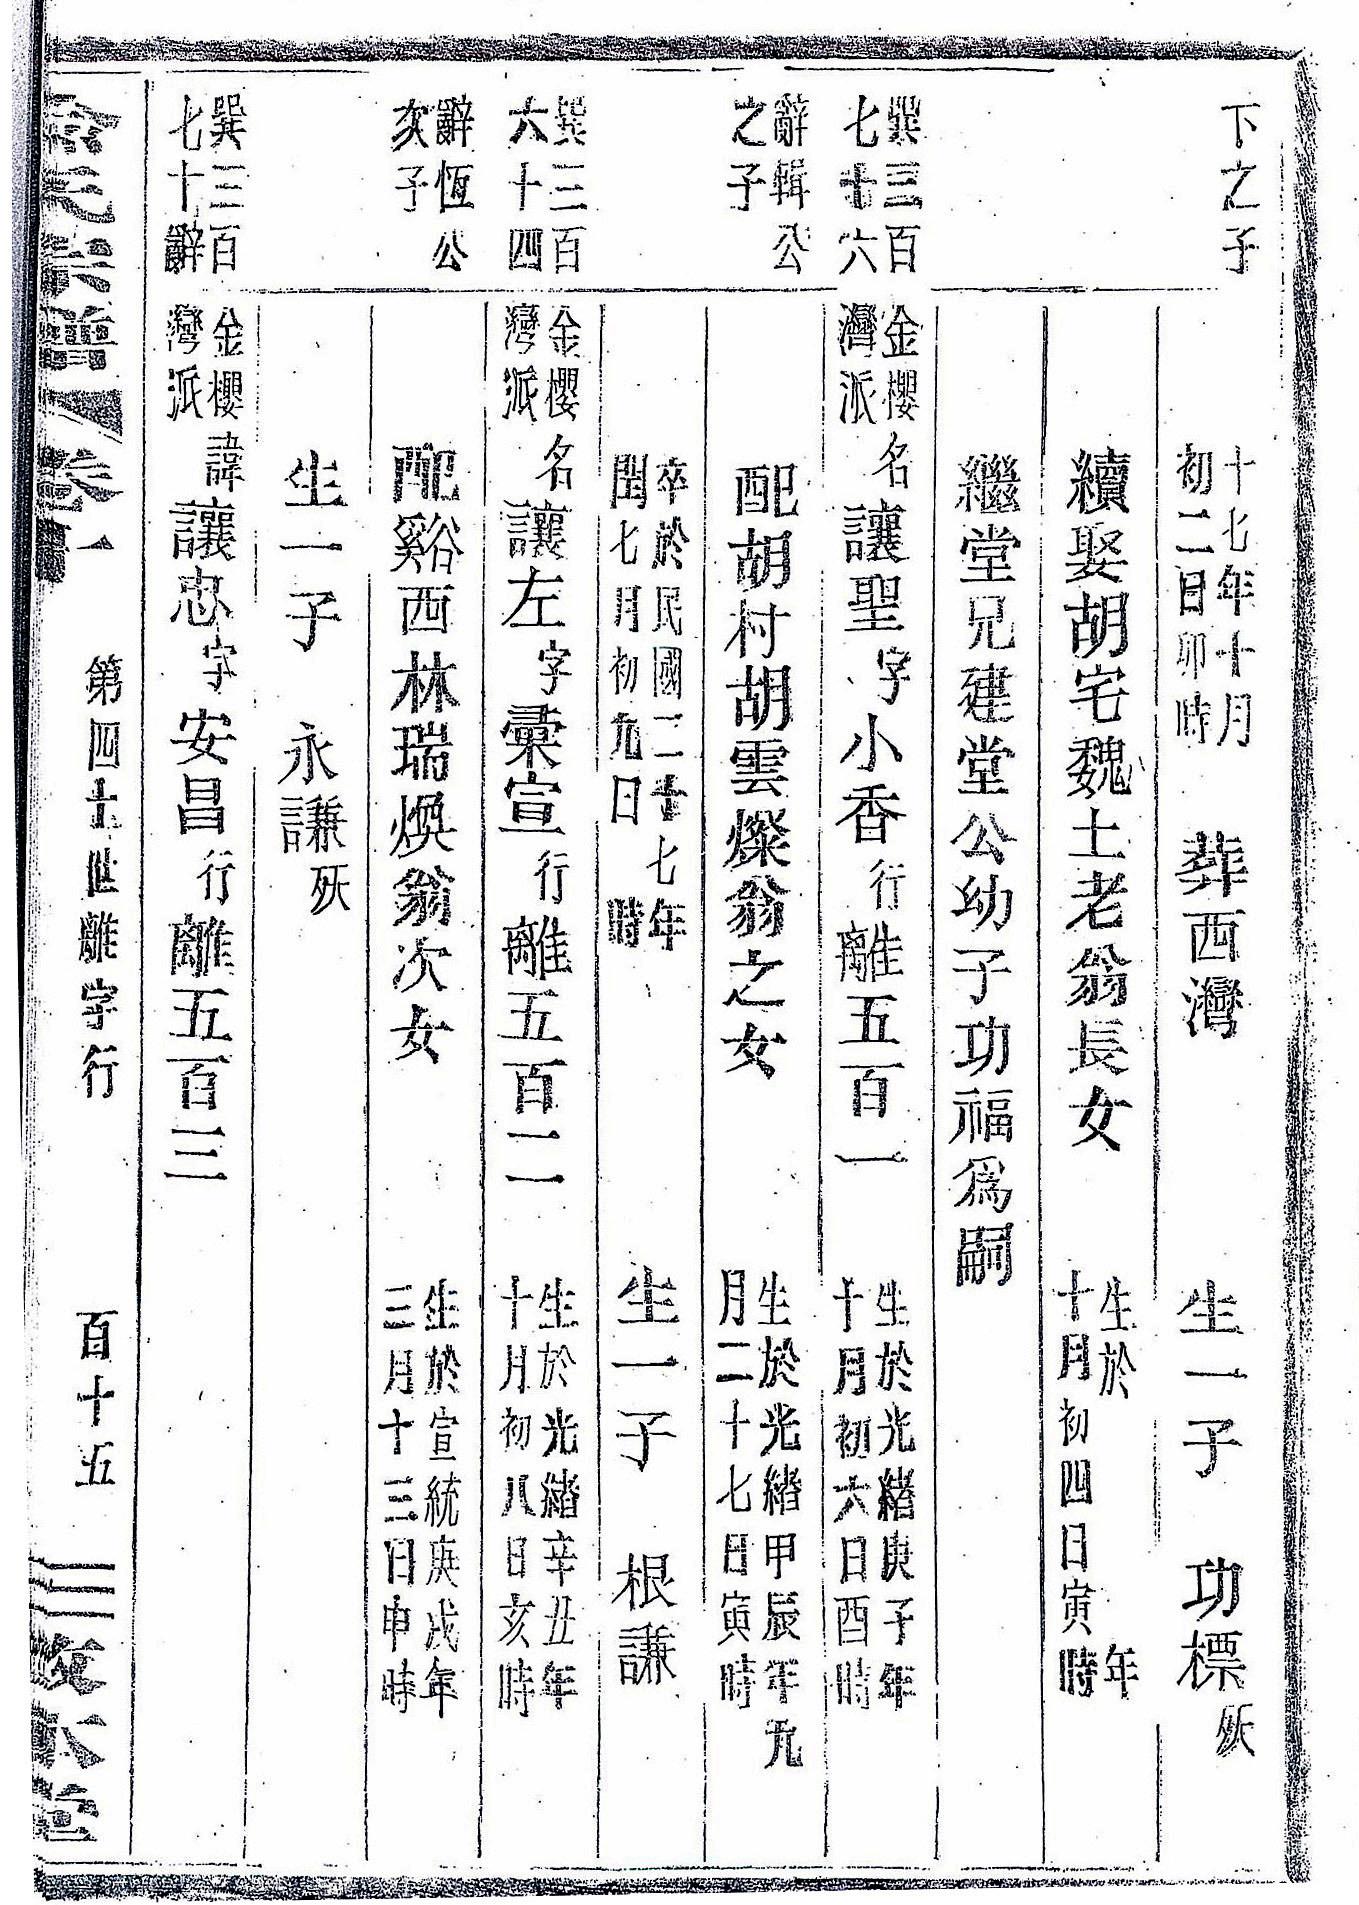 下之子
十七年十月
初二日卯時
葬西灣
生一子
功標
殀
續娶胡宅魏土老翁長女
生於 年
十月初四日寅時
繼堂兄建堂公幼子功福爲嗣
巽三百
七十六
金櫻
灣派
名讓聖字小香行離五百一
生於光緒庚子年
十月初六日酉時
辭輯公
之子
配胡村胡雲燦翁之女
生於光緒甲辰年九
月二十七日寅時
卒於民國二十七年
閏七月初九日 時
生一子
根謙
巽三百
六十四
金櫻
灣派
名讓左字彙宣行離五百二
生於光緒辛丑年
十月初八日亥時
辭恆公
次子
配谿西林瑞煥翁次女
生於宣統庚戌年
三月十三日申時
生一子
永謙
殀
巽三百
七十辭
金櫻
灣派
諱讓忠字安昌行離五百三
氏宗譜
卷一
第四十世離字行
百十五